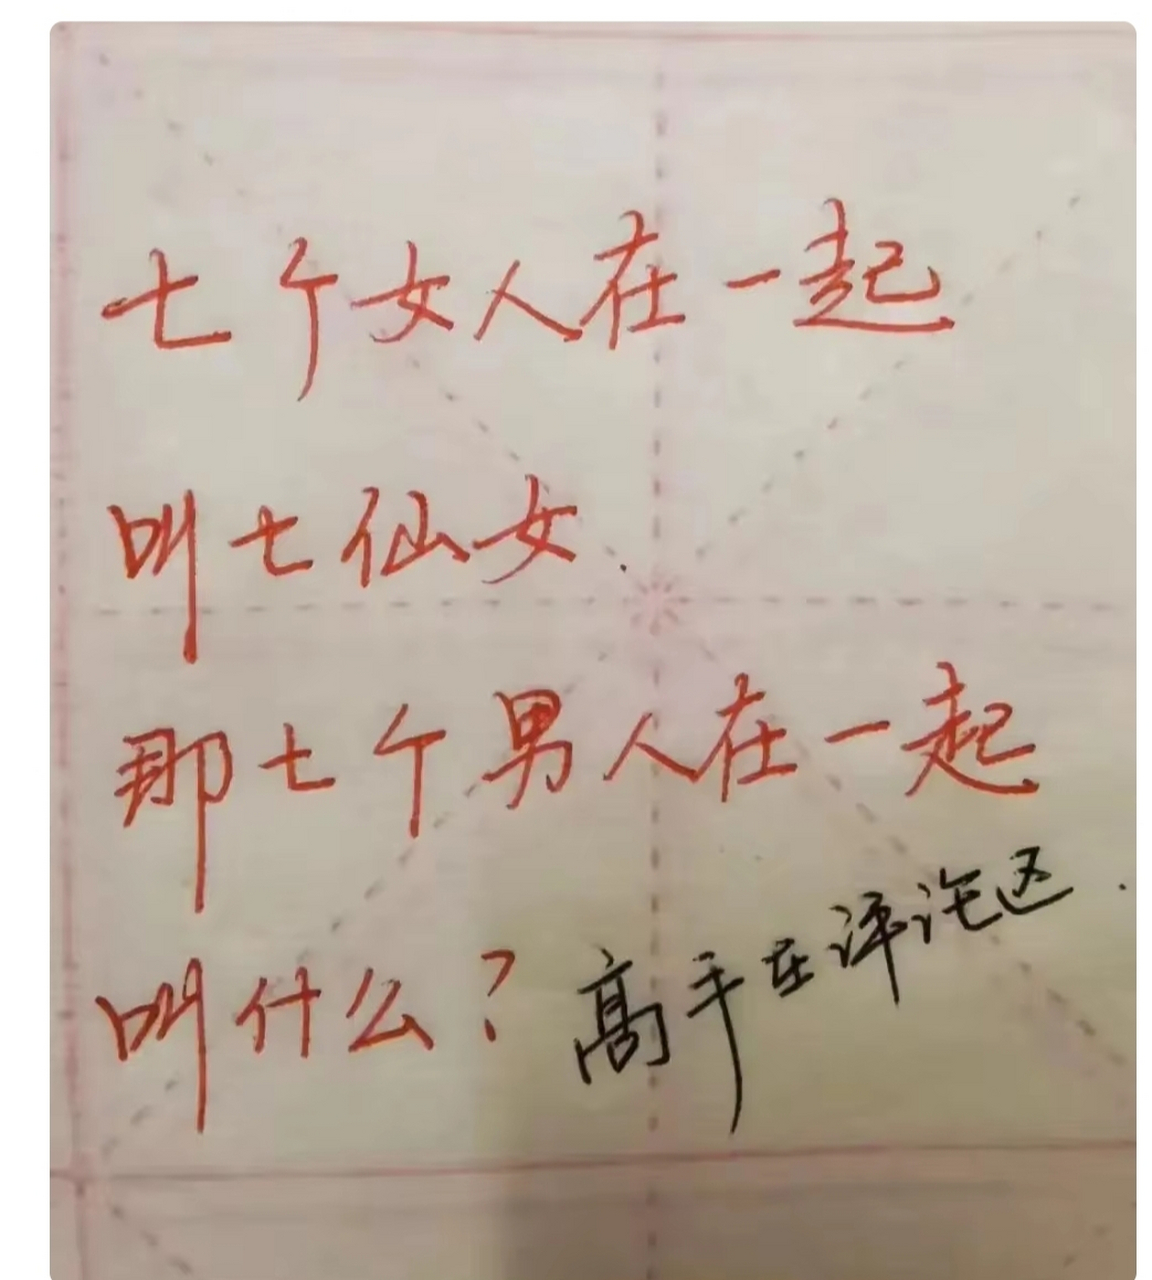 七个女人在一起
叫七仙女.
那七个男人在一起
叫什么?
高手在评论区.